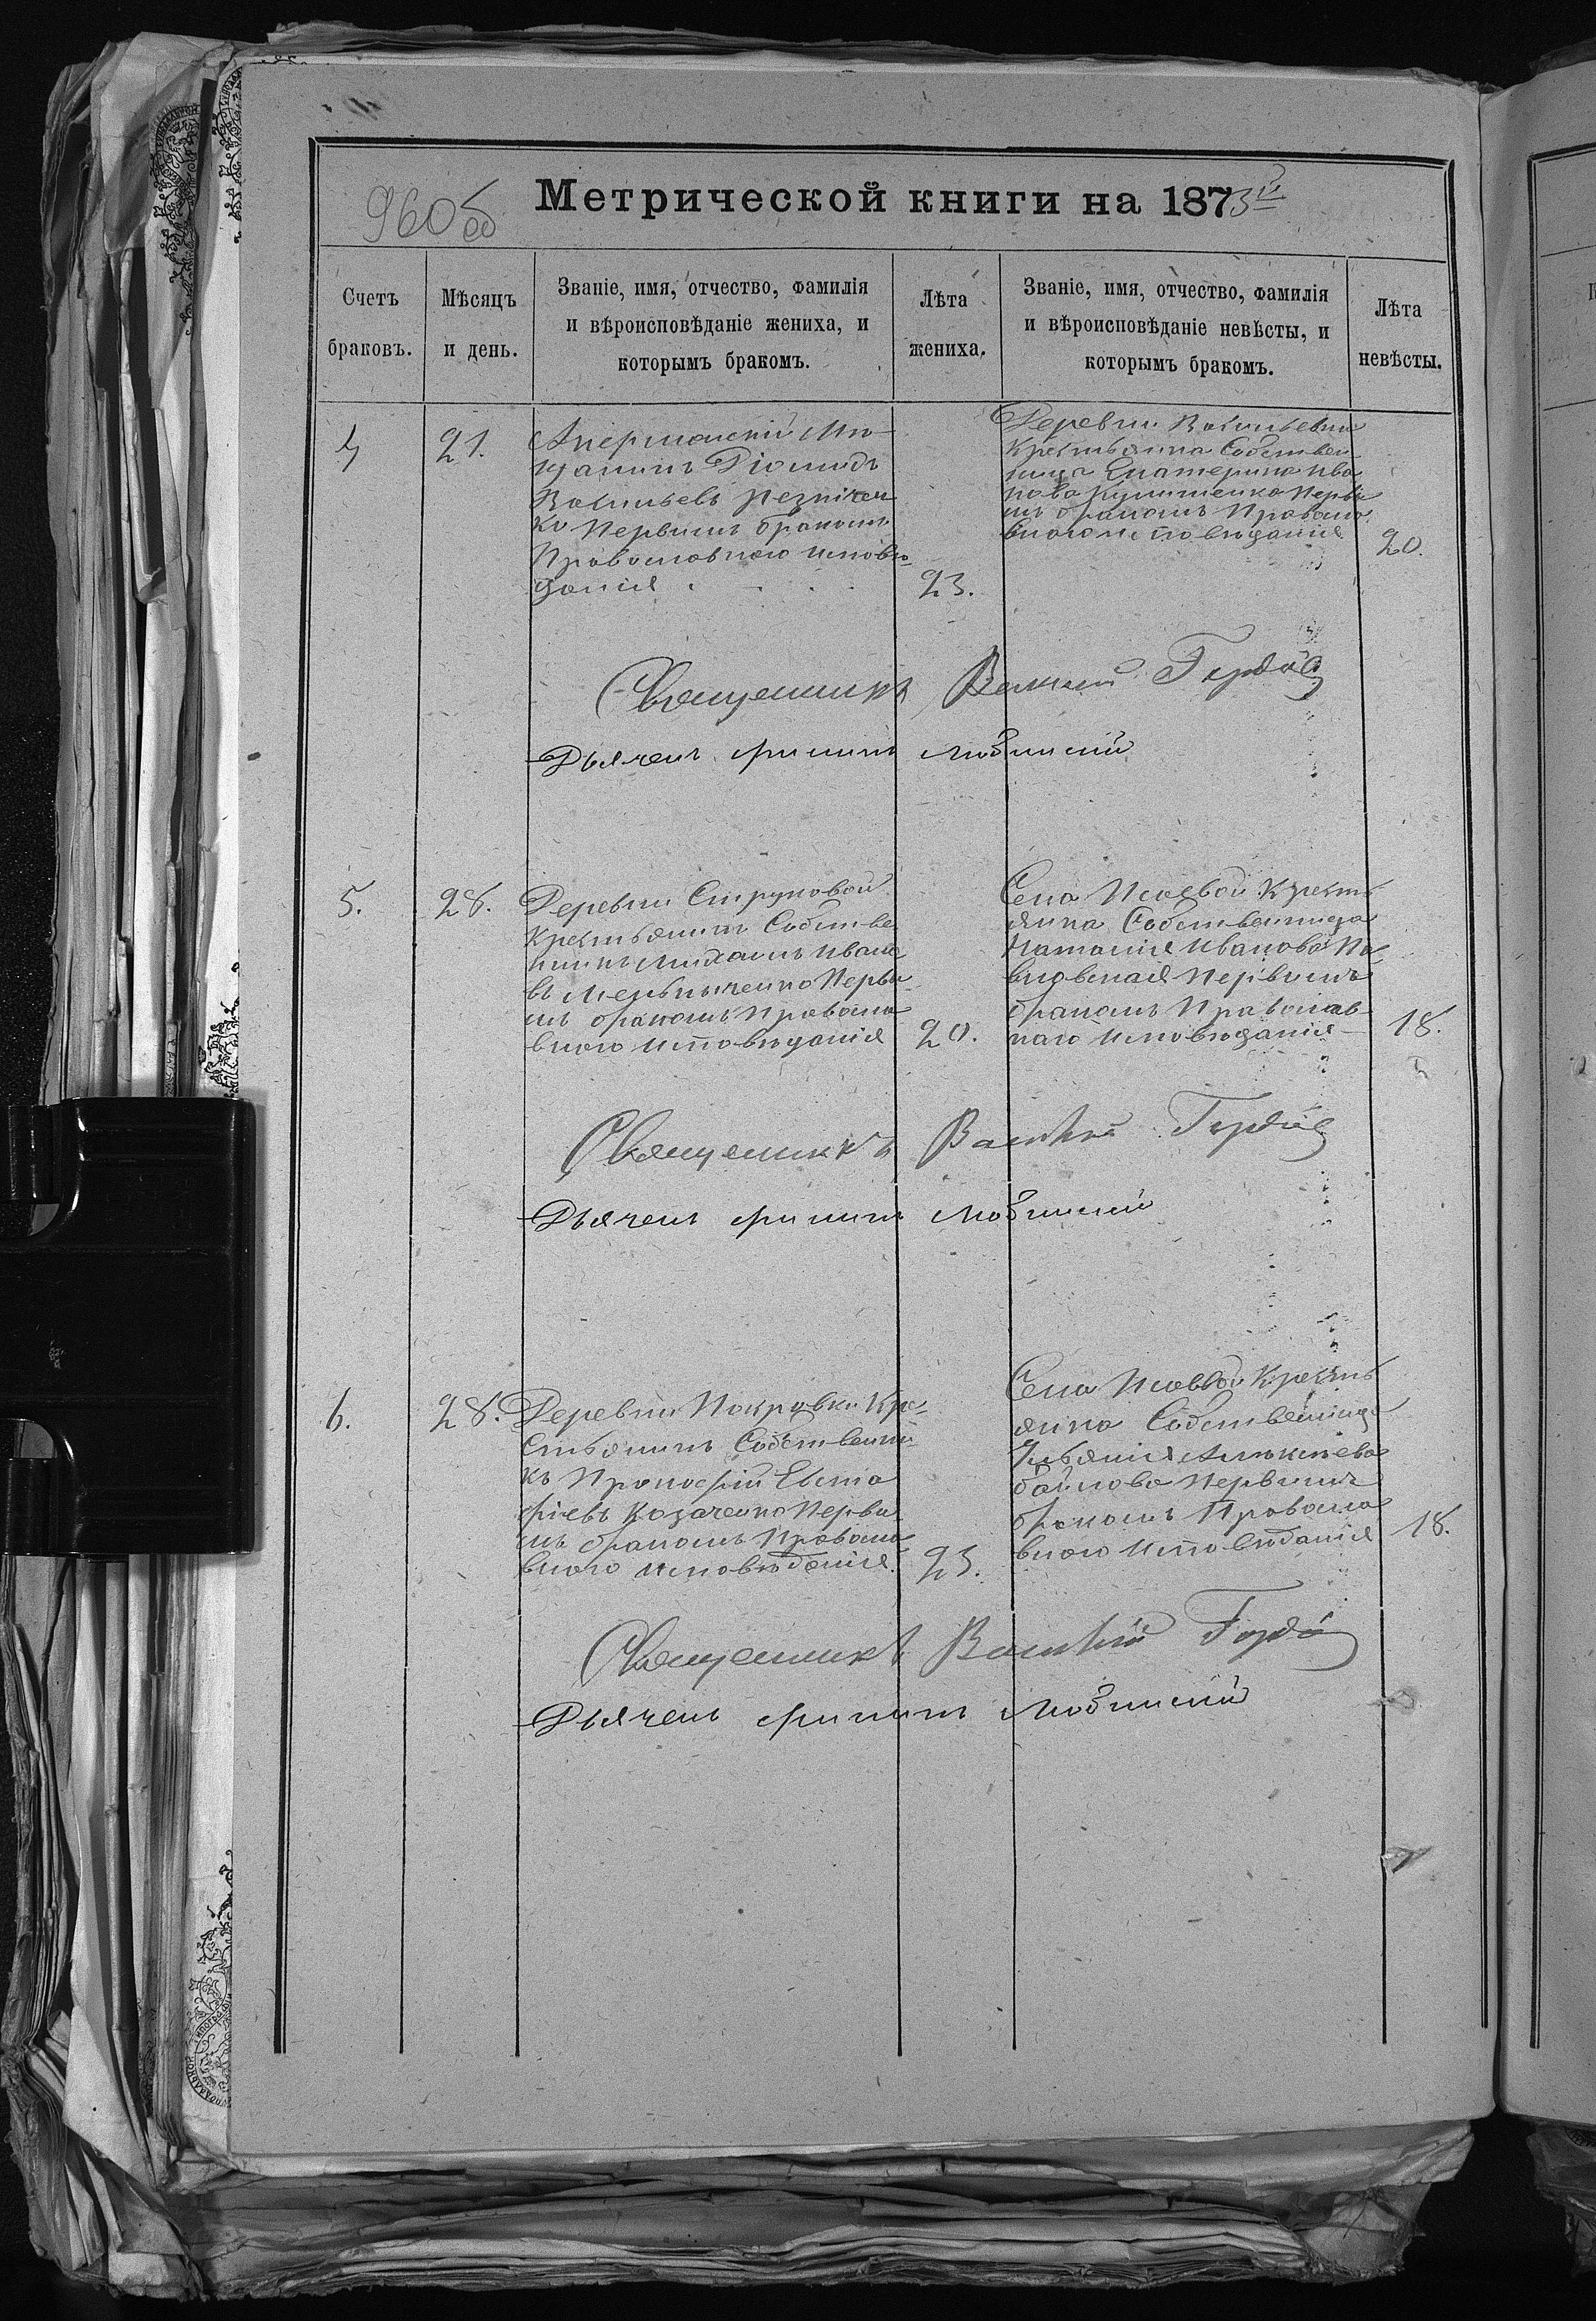 960 об
Метрической книги на 1873й
Счетъ
браковъ.
Мѣсяцъ
и день.
Званіе, имя, отчество, фамилія
и вѣроисповѣданіе жениха, и
которымъ бракомъ.
Лѣта
жениха.
Званіе, имя, отчество, фамилія
и вѣроисповѣданіе невѣсты, и
которымъ бракомъ.
Лѣта
невѣсты.
4
21.
Акерманскій Мѣ-
щанинъ Діомидъ
Васильевъ Резничен
ко Первымъ бракомъ
Православного исповѣ-
данія
23.
Деревни Васильевки
Крестьянка Собствен-
ница Екатерина Ива
нова Первы
мъ бракомъ Правосла
вного исповѣданія
20.
Священникъ Василій
Дьячекъ Филипъ
5.
28.
Деревни Струковой
Крестьянинъ Собстве
нникъ Михаилъ Ивано
въ Мельниченко Первы
мъ бракомъ Правосла
вного исповѣданія
20.
Села Исаевой Кресть
янка Собственница
Наталія Иванова Па-
вловская Первымъ
бракомъ Православ-
наго исповѣданія
18.
Священникъ Василій
Дьячекъ Филипъ
6.
28.
Деревни Покровки Кре-
стьянинъ Собственни-
къ Прокофій Евста
фіевъ Козаченко Первы
мъ бракомъ Правосла
вного исповѣданія.
23.
Села Исаевой Кресть
янка Собственница
Ульянія Алексѣева
Первымъ
бракомъ Правосла
вного исповѣданія
18.
Священникъ Василій
Дьячекъ Филипъ